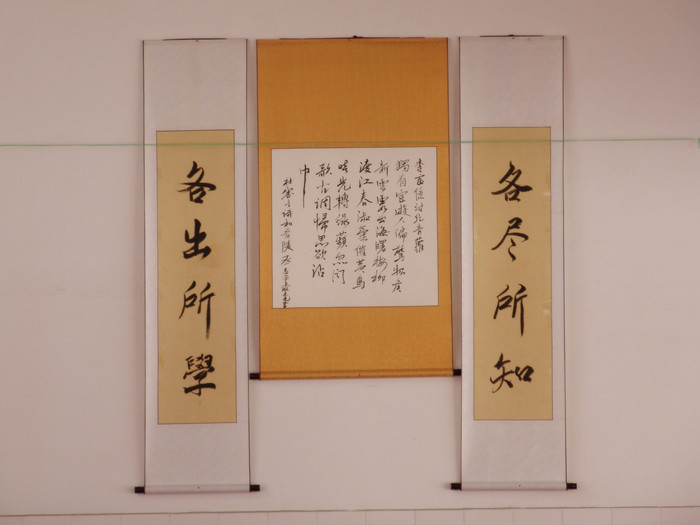 各尽所知
獨有宦遊人偏驚物候
新雲霞出海曙梅柳
渡江春淑氣催黃鳥
晴光轉綠蘋忽聞
歌古調歸思欲沾
巾
杜審言詩和晉陵
各出所學